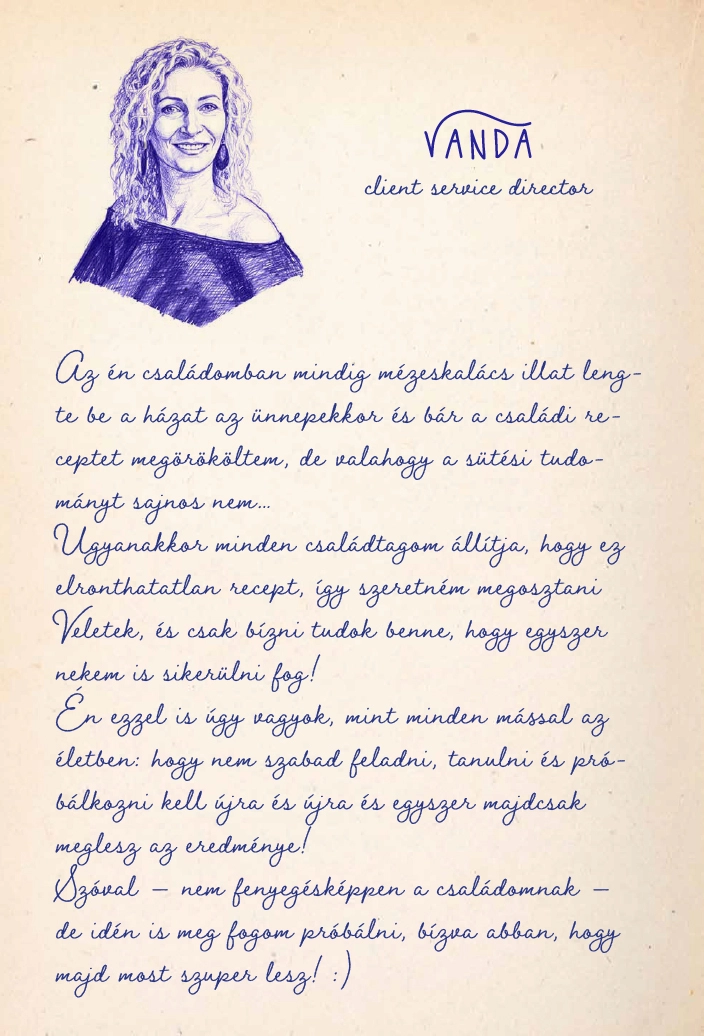 VANDA
client service director
Az én családomban mindig mézeskalács illat leng-
te be a házat az ünnepekkor és bár a családi re-
ceptet megörököltem, de valahogy a sütési tudo-
mányt sajnos nem...
Ugyanakkor minden családtagom állítja, hogy ez
elronthatatlan recept, így szeretném megosztani
Veletek, és csak bízni tudok benne, hogy egyszer
nekem is sikerülni fog!
Én ezzel is úgy vagyok, mint minden mással az
életben: hogy nem szabad feladni, tanulni és pró-
bálkozni kell újra és újra és egyszer majdcsak
meglesz az eredménye!
Szóval – nem fenyegésképpen a családomnak –
de idén is meg fogom próbálni, bízva abban, hogy
majd most szuper lesz! :)